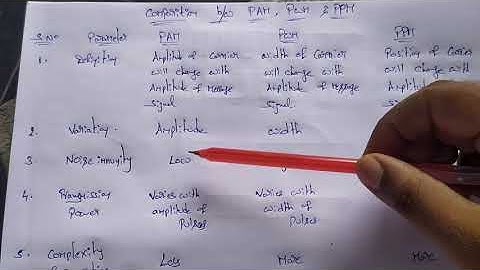 Comparition b/w PAM, PWM & PPM
S.No Parameter PAM PWM PPM
1. Defnition Amplitude of Carrier width of Carrier Position of Carrier
will change with will change with will change with
Amplitude of Message Amplitude of Message Amplitude of
signal signal.
2. Variation. Amplitude width
3 Noise immunity Low
4. Transmission Varies with Varies with
Power amplitude of width of
Pulses Pulses
5. Complexity Less More More